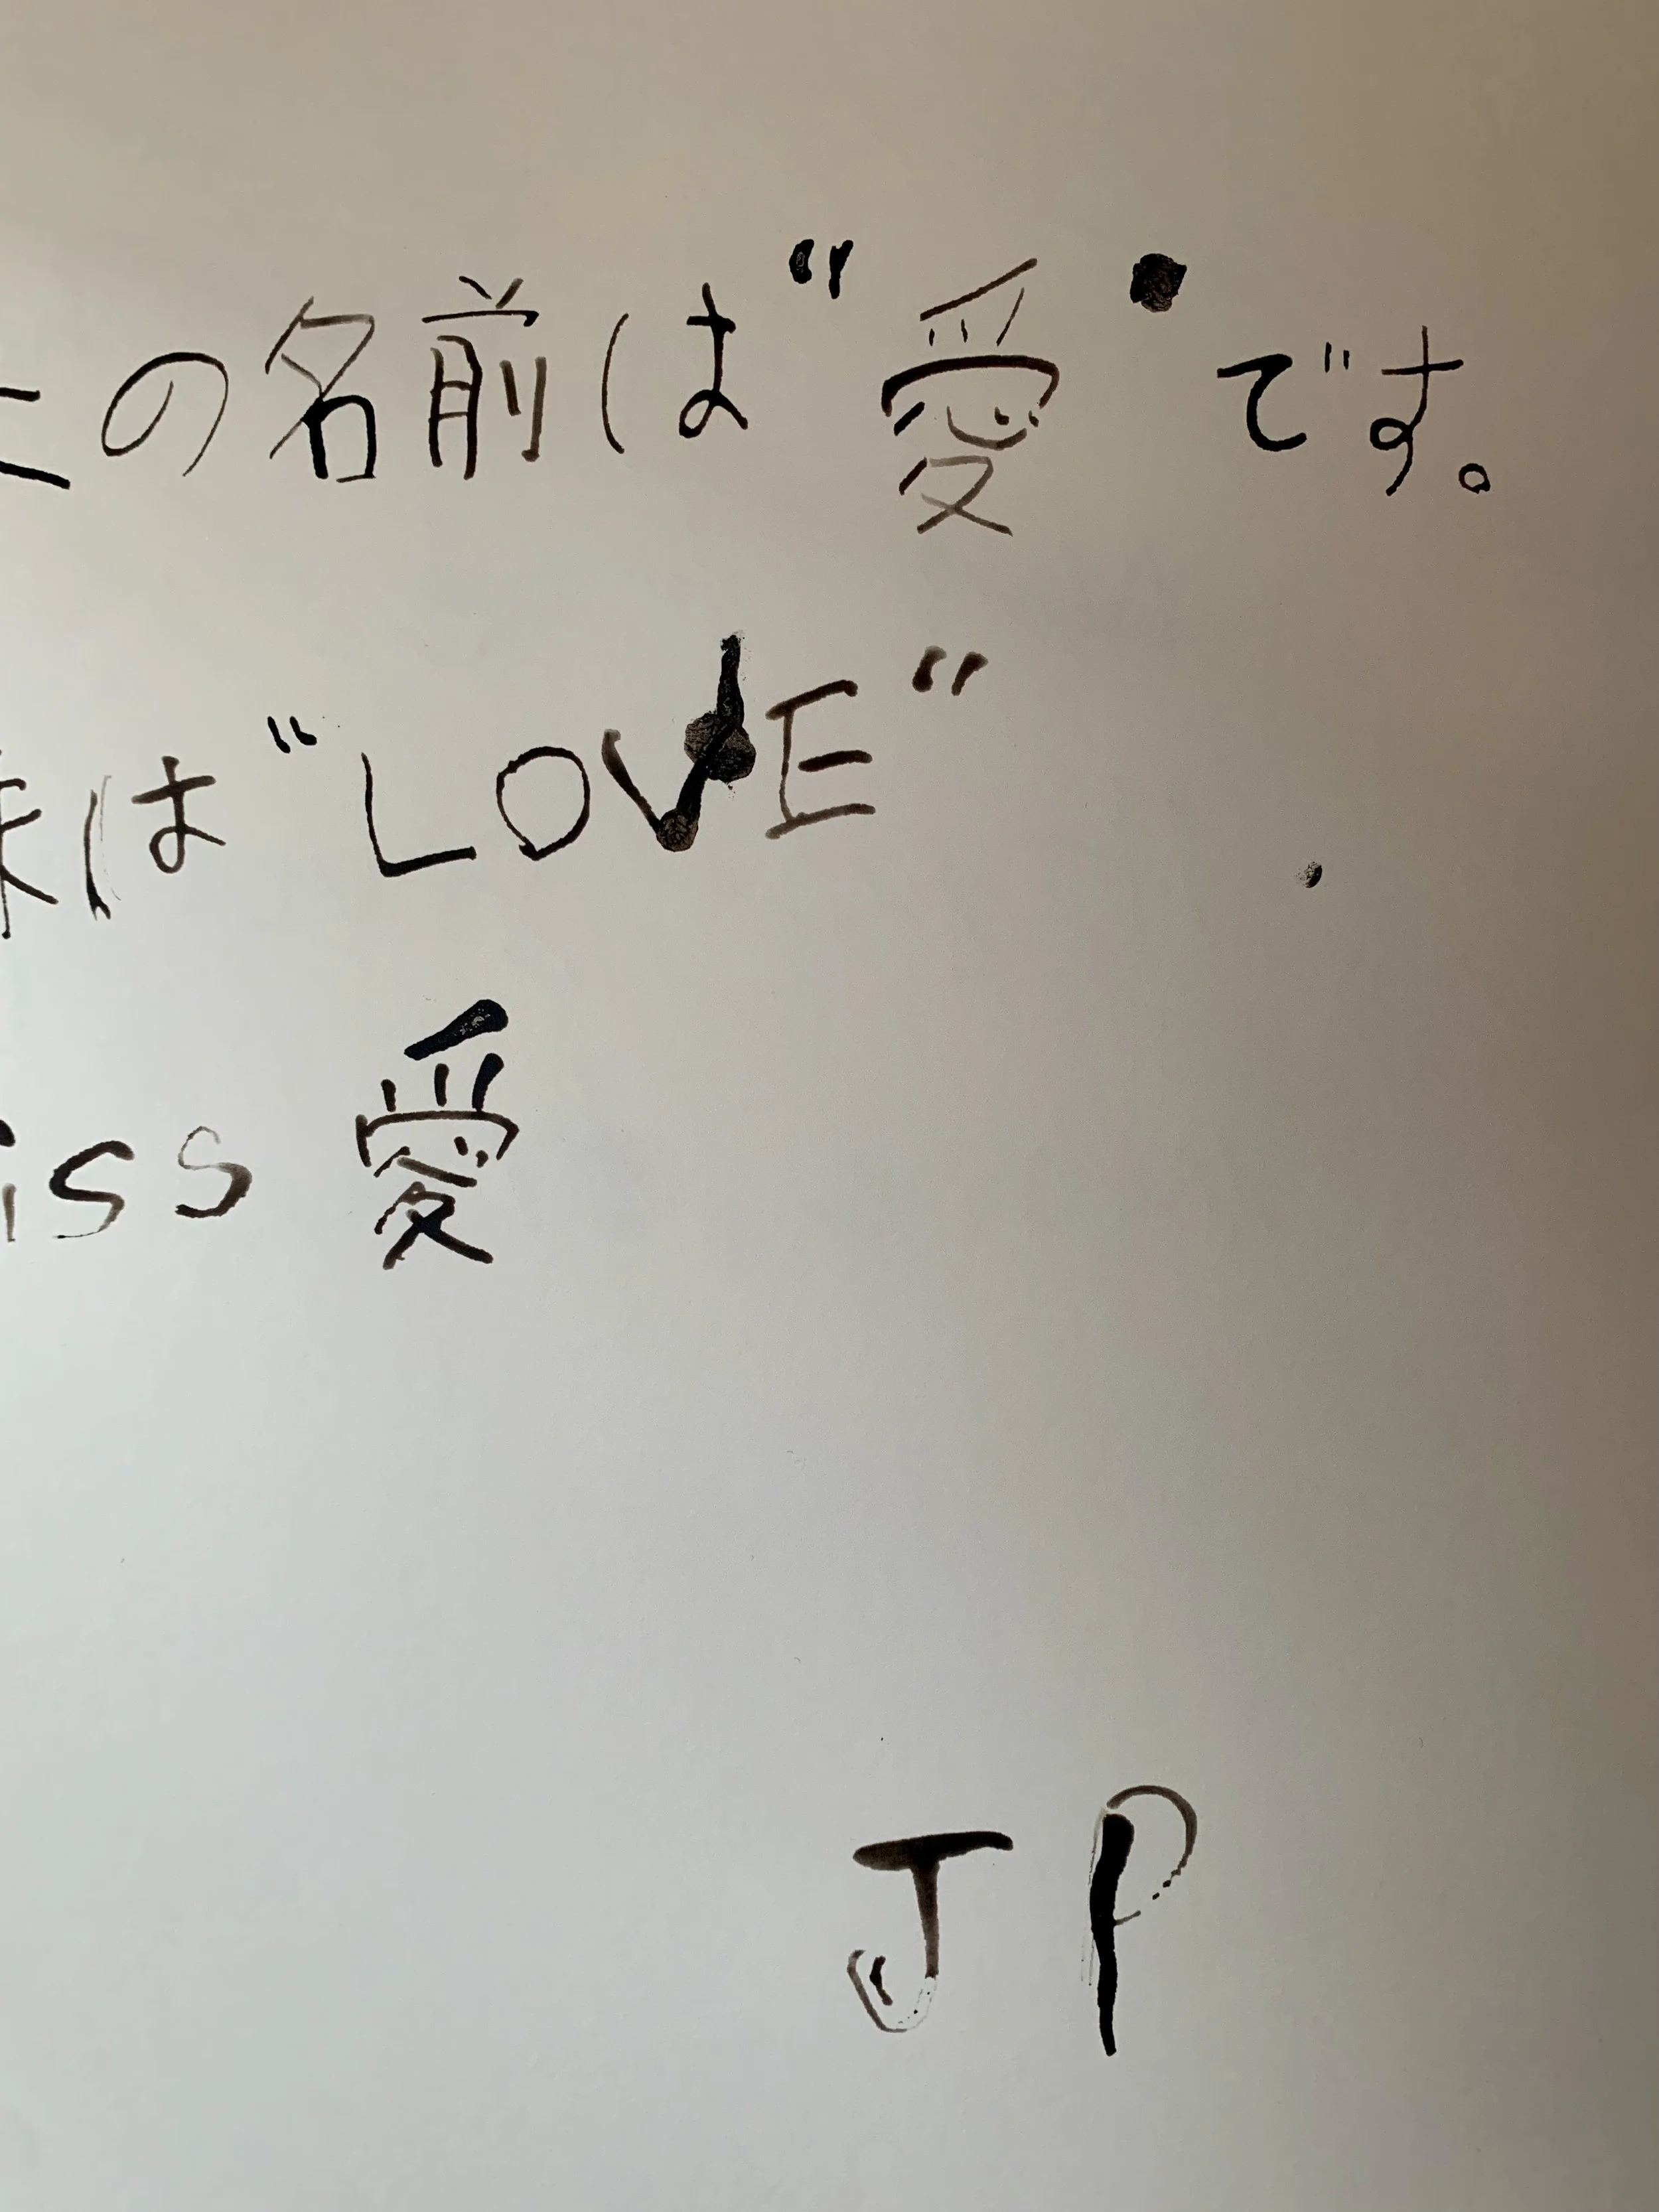 の名前は“愛”です。
は“LOVE”
iss 愛
JP